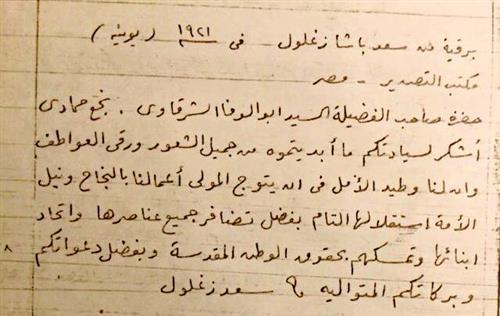 برقية من سعد باشا زغلول - فى ١٩٢١ (يونيه)
مكتب التصدير - مصر
حضرة صاحب الفضيلة السيد ابو الوفا الشرقاوى . بنجع حمادى
أشكر لسيادتكم ما أبديتموه من جميل الشعور ورقى العواطف
وان لنا وطيد الأمل فى ان يتوج المولى أعمالنا بالنجاح ونيل
الأمة استقلالها التام بفضل تضافر جميع عناصرها واتحاد
ابنائها وتمسكهم بحقوق الوطن المقدسة وبفضل دعواتكم
وبركاتكم المتواليه سعد زغلول